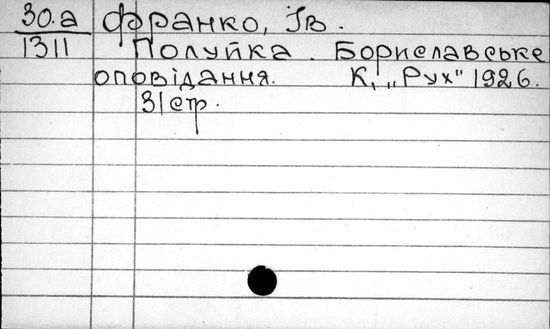 30.а Франко, Ів.
1311 Полуйка. Бориславське
оповідання. К, „Рух" 1926.
31стр.